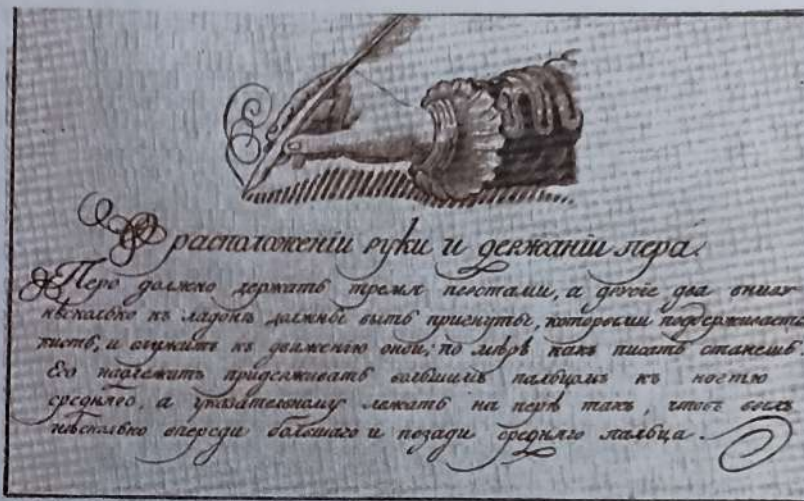 О расположенїи руки и держанїи пера.
Перо должно держать тремя перстами, а другїе два внизу
нѣсколько къ ладонѣ должны быть пригнуты, которыми поддерживаетъ
кисть, и служитъ къ движенїю оной; по мѣрѣ какъ писать станешь.
Его надлежитъ придерживать большимъ пальцомъ къ ногтю
среднѧго, а указательному лежать на перѣ такъ, чтобъ былъ
нѣсколько впереди большаго и позади среднѧго пальца.